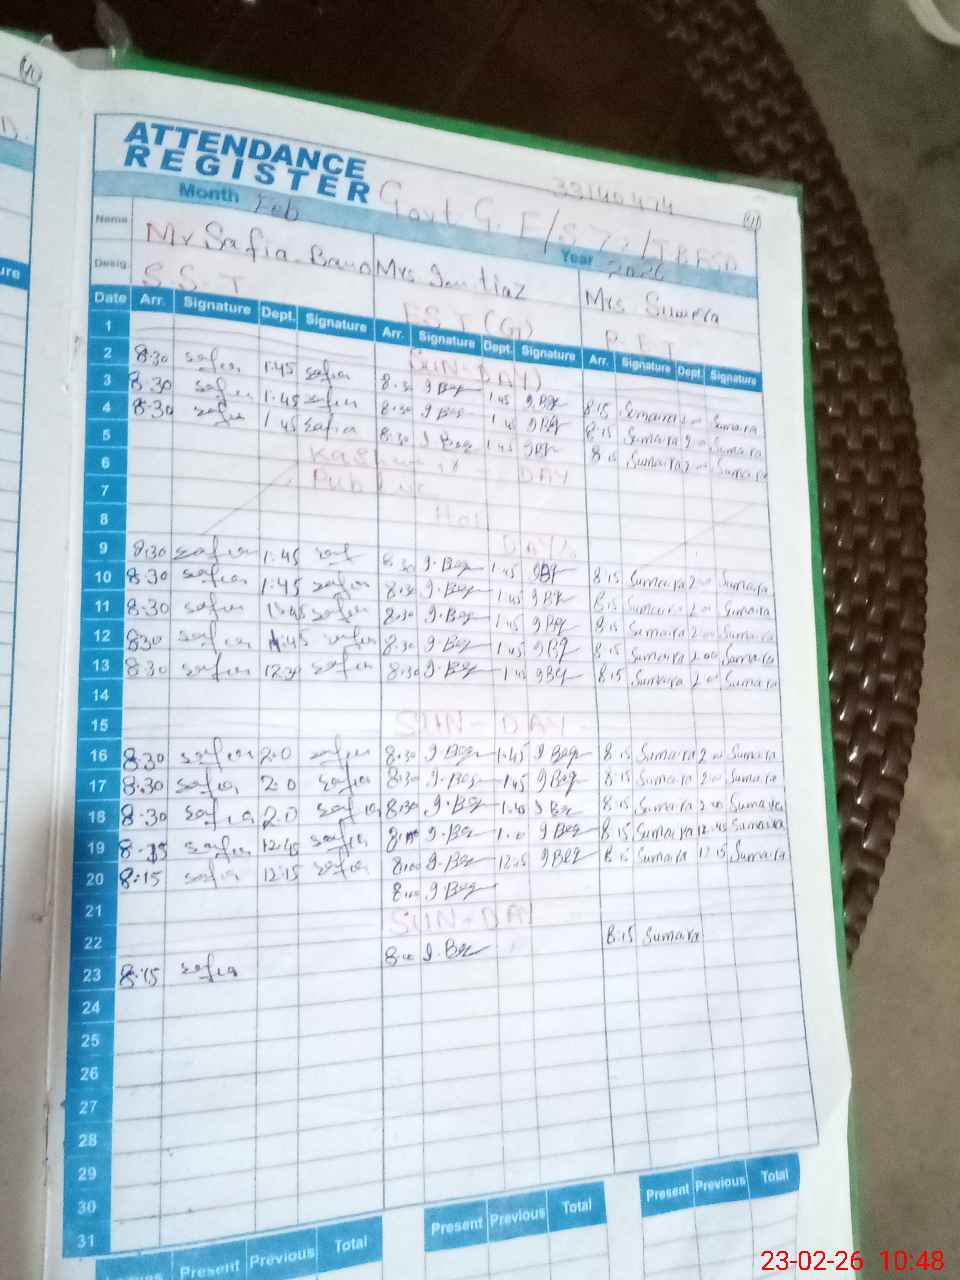 ATTENDANCE
REGISTER
33140474
Month Feb Govt G. E/S 
Year 2026
Name Mr Safia Bano Mrs. Imtiaz Mrs. Sumera
Desig. S.S.T EST (G)
Date Arr. Signature Dept. Signature Arr. Signature Dept. Signature Arr. Signature Dept. Signature
1 SUN-DAY
2 8:30 safia 1:45 safia 8:30 I Beg 1:45 I Beg 8:15 Sumaira 2:00 Sumaira
3 8:30 safia 1:45 safia 8:30 I Beg 1:45 I Beg 8:15 Sumaira 2:00 Sumaira
4 8:30 safia 1:45 safia 8:30 I Beg 1:45 I Beg 8:15 Sumaira 2:00 Sumaira
5 Kashmir DAY
6 Public
7
8 Holi DAY
9 8:30 safia 1:45 8:30 I.Beg 1:45 I Beg 8:15 Sumaira 2:00 Sumaira
10 8:30 safia 1:45 safia 8:30 I.Beg 1:45 I Beg 8:15 Sumaira 2:00 Sumaira
11 8:30 safia 1:45 safia 8:30 I.Beg 1:45 I Beg 8:15 Sumaira 2:00 Sumaira
12 830 safia 1:45 safia 8:30 I.Beg 1:45 I Beg 8:15 Sumaira 2:00 Sumaira
13 8:30 safia 12:30 safia 8:30 I.Beg I Beg 8:15 Sumaira 2:00 Sumaira
14
15 SUN-DAY
16 8:30 safia 2:0 safia 8:30 I Beg 1:45 I Beg 8:15 Sumaira 2:00 Sumaira
17 8:30 safia 2:0 safia 8:30 I.Beg 1:45 I Beg 8:15 Sumaira 2:00 Sumaira
18 8:30 safia 2:0 safia 8:30 I.Beg I Beg 8:15 Sumaira 2:00 Sumaira
19 safia 12:45 safia I.Beg I Beg 8:15 Sumaira 12:45 Sumaira
20 8:15 safia 12:15 safia 8:00 I.Beg 12:15 I Beg 8:15 Sumaira 12:15 Sumaira
21 8:00 I.Beg
22 SUN-DAY
23 8:15 safia 8:00 I.Beg 8:15 Sumaira
24
25
26
27
28
29
30
31
Present Previous Total Present Previous Total Present Previous Total
23-02-26 10:48